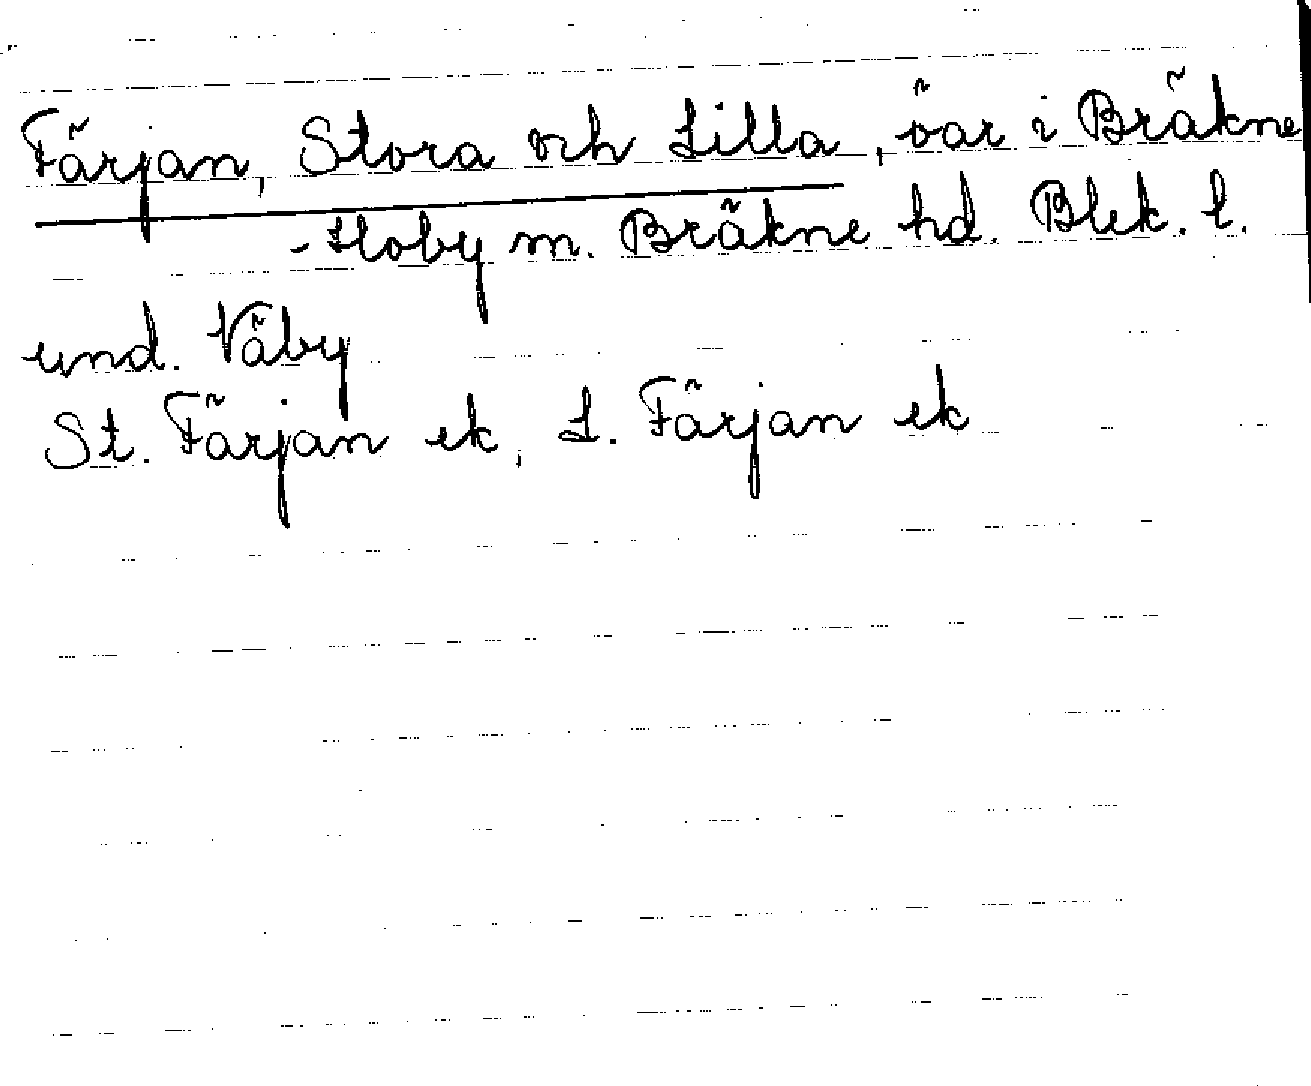 Färjan, Stora och Lilla, öar i Bräkne
-Hoby m. Bräkne hd. Blek. l.
und. Väby
St. Färjan ek, L. Färjan ek